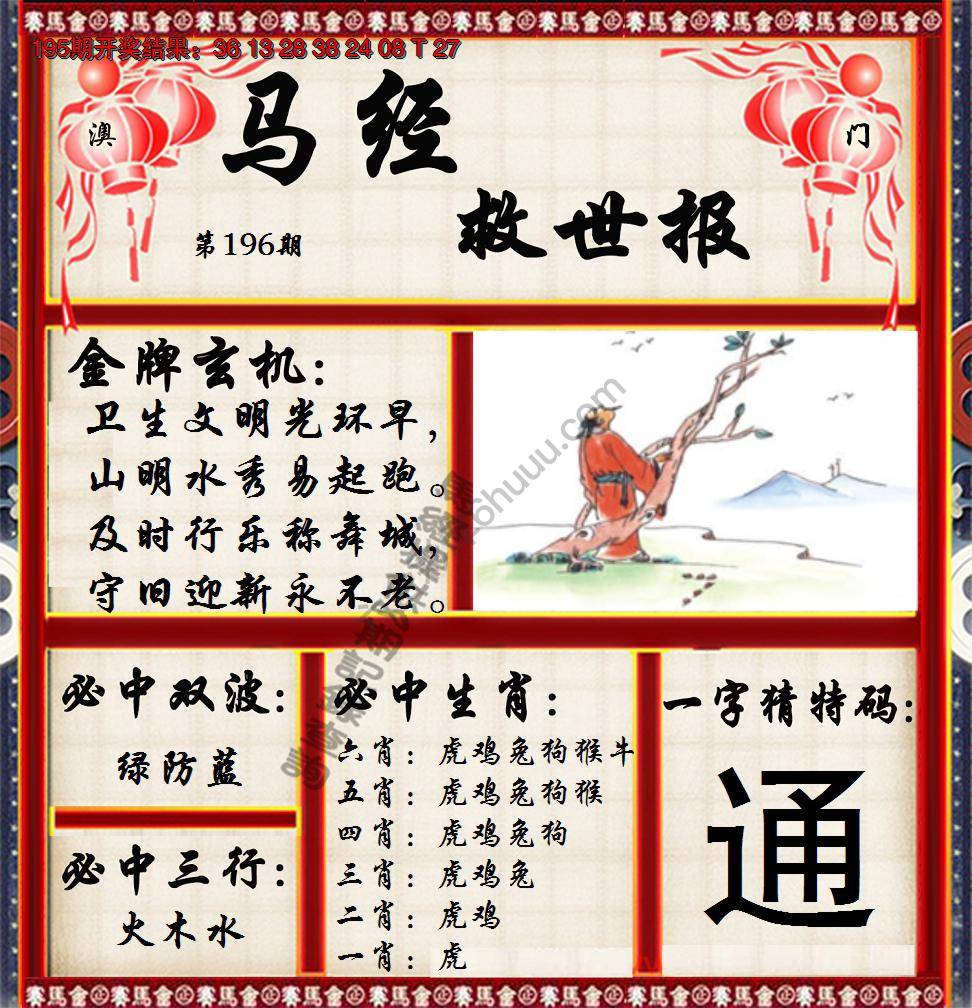 195期开奖结果：36 13 28 38 24 08 T 27
澳
门
马经
救世报
第196期
金牌玄机：
卫生文明光环早，
山明水秀易起跑。
及时行乐称舞城，
守旧迎新永不老。
必中双波：
绿防蓝
必中三行：
火木水
必中生肖：
六肖：虎鸡兔狗猴牛
五肖：虎鸡兔狗猴
四肖：虎鸡兔狗
三肖：虎鸡兔
二肖：虎鸡
一肖：虎
一字猜特码：
通